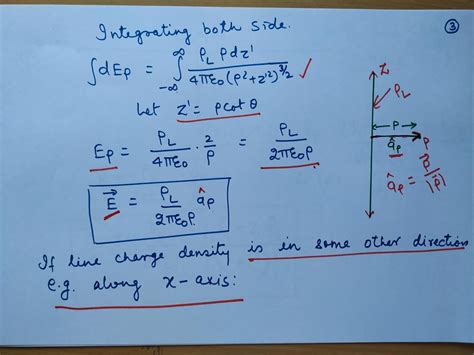 ③
Integrating both side.
∫dEρ = ∫_{-∞}^{∞} ρL ρ dz' / 4πε0 (ρ² + z'²)^{3/2} ✓
Let z' = ρ cot θ
Eρ = ρL / 4πε0 · 2/ρ = ρL / 2πε0ρ
E⃗ = ρL / 2πε0ρ âρ
Z
ρL
ρ
P
âρ
âρ = ρ⃗ / |ρ⃗|
If line charge density is in some other direction
e.g. along x-axis: